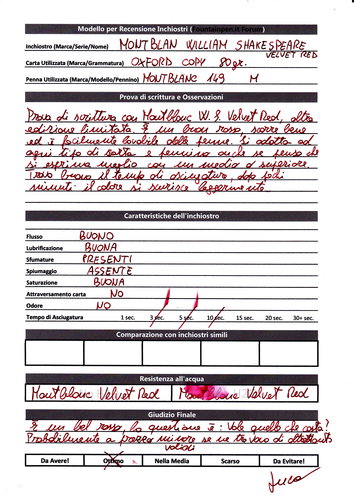 Modello per Recensione Inchiostri (fountainpen.it Forum)
Inchiostro (Marca/Serie/Nome) MONTBLAN WILLIAM SHAKESPEARE
VELVET RED
Carta Utilizzata (Marca/Grammatura) OXFORD COPY 80gr.
Penna Utilizzata (Marca/Modello/Pennino) MONTBLANC 149 M
Prova di scrittura e Osservazioni
Prova di scrittura con Montblanc W.S. Velvet Red, altra
edizione limitata. È un buon rosso, scorre bene
ed è facilmente lavabile dalle penne. Si adatta ad
ogni tipo di carta e pennino anche se penso che
si esprima meglio con un medio o superiore.
Trovo buono il tempo di asciugatura, dopo pochi
minuti il colore si scurisce leggermente.
Caratteristiche dell'inchiostro
Flusso BUONO
Lubrificazione BUONA
Sfumature PRESENTI
Spiumaggio ASSENTE
Saturazione BUONA
Attraversamento carta NO
Odore NO
Tempo di Asciugatura 1sec. 3sec. 5sec. 10sec. 15sec. 20sec. 30+sec.
Comparazione con inchiostri simili
Resistenza all'acqua
Montblanc Velvet Red Montblanc Velvet Red
Giudizio Finale
È un bel rosso, la questione è: Vale quello che costa?
Probabilmente a prezzo minore se ne trovano di altrettanto
validi
Da Avere! Ottimo Nella Media Scarso Da Evitare!
Luca